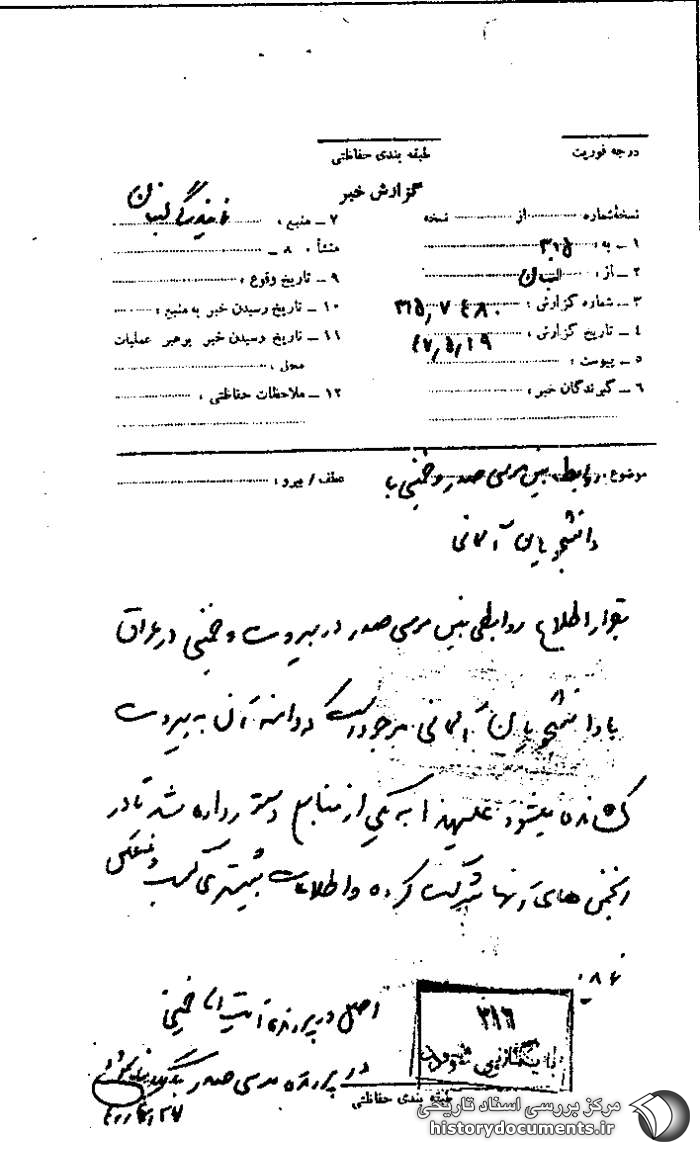 درجه فوریت
طبقه بندی حفاظتی
گزارش خبر
نسخهٔ شماره از نسخه
۱ ـ به : ۳۰۵
۲ ـ از : لبنان
۳ ـ شماره گزارش : ۳۱۵٫۷۴۸۰
۴ ـ تاریخ گزارش : ۴۷٫۵٫۱۹
۵ ـ پیوست :
۶ ـ گیرندگان خبر :
۷ ـ منبع : نمایندگی لبنان
۸ ـ منشأ :
۹ ـ تاریخ وقوع :
۱۰ ـ تاریخ رسیدن خبر به منبع :
۱۱ ـ تاریخ رسیدن خبر برهبر عملیات
محل :
۱۲ ـ ملاحظات حفاظتی :
موضوع : روابط بین موسی صدر و خمینی با
عطف / پیرو :
دانشجویان آلمانی
بقرار اطلاع روابطی بین موسی صدر در بیروت و خمینی در عراق
با دانشجویان آلمانی موجود است که دامنه آن به بیروت
کشانده میشود علیهذا به یکی از منابع دستور داده شد تا در
انجمن های آنها شرکت کرده و اطلاعات بیشتری کسب و منعکس
نماید
۳۱۶
بایگانی شود
اصل در پرونده آیت اله خمینی
در پرونده موسی صدر
طبقه بندی حفاظتی
مرکز بررسی اسناد تاریخی
historydocuments.ir